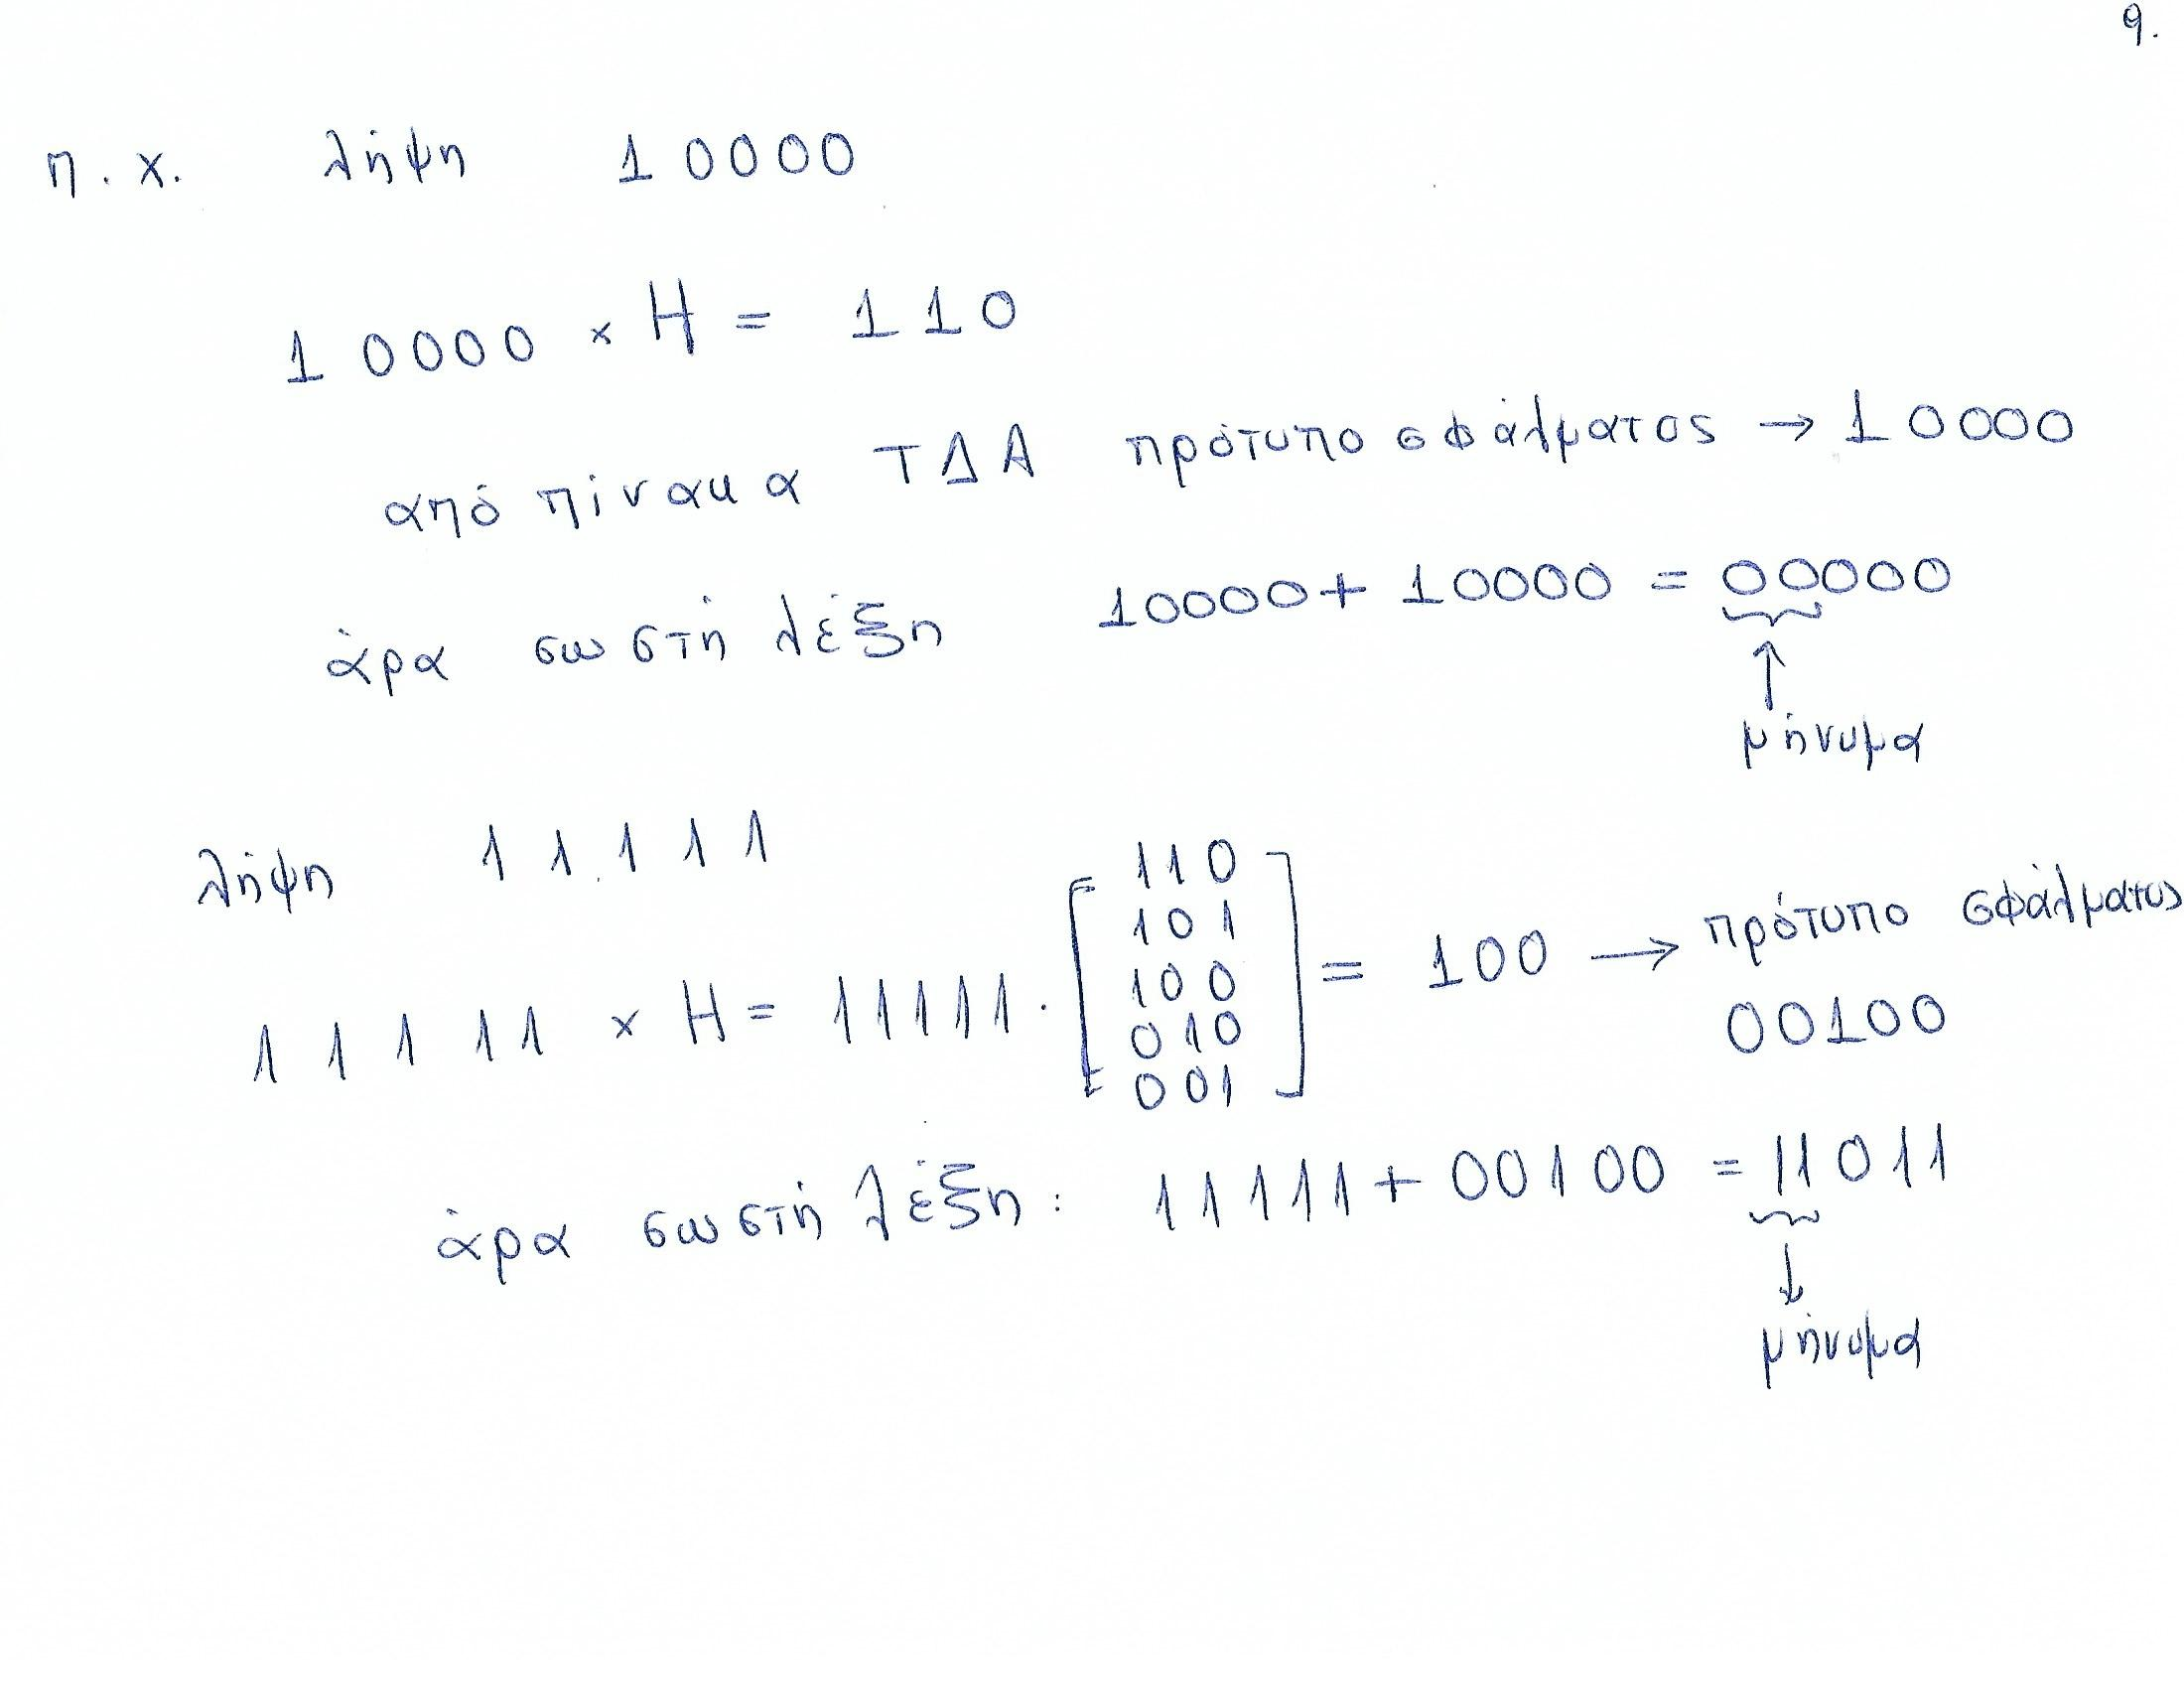 9.
π.χ. λήψη 10000
10000 × H = 110
από πίνακα ΤΔΑ πρότυπο σφάλματος → 10000
άρα σωστή λέξη 10000 + 10000 = 00000
↑
μήνυμα
λήψη 11111
11111 × H = 11111 · [110
101
100
010
001] = 100 → πρότυπο σφάλματος
00100
άρα σωστή λέξη: 11111 + 00100 = 11011
↓
μήνυμα